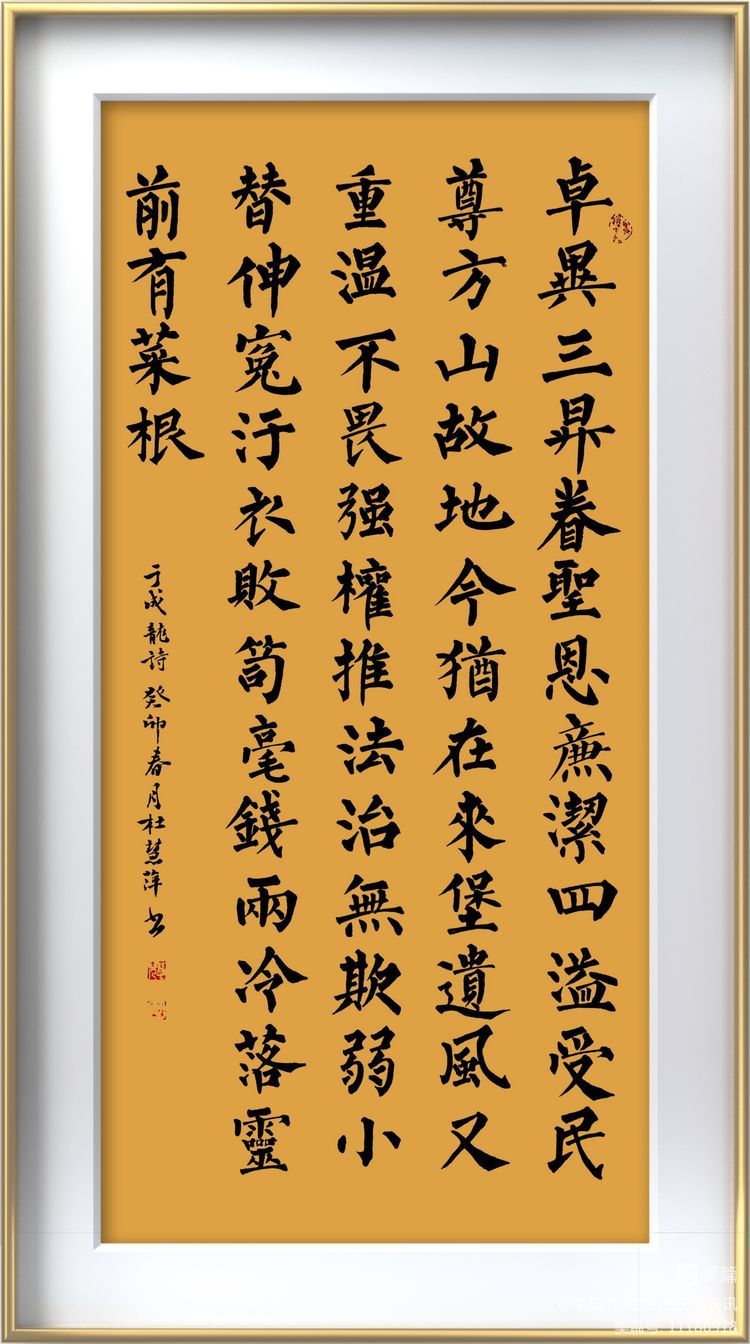 卓異三昇眷聖恩廉潔四溢受民
尊方山故地今猶在來堡遺風又
重温不畏强權推法治無欺弱小
替伸冤汙衣敗笥毫錢兩冷落靈
前有菜根
于成龍詩癸卯春月杜慧萍书
美篇